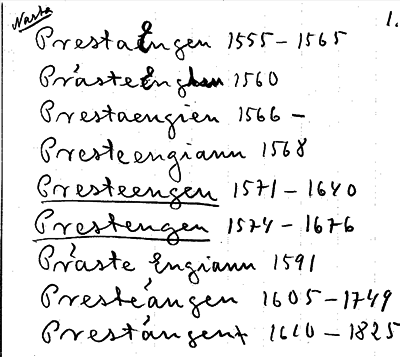 Narta
1.
PrestaEngen 1555-1565
Prästeengen 1560
Prestaengien 1566-
Presteengiann 1568
Presteengen 1571-1640
Prestengen 1574-1676
Präste Engiann 1591
Presteängen 1605-1749
Prestängen 1610-1825